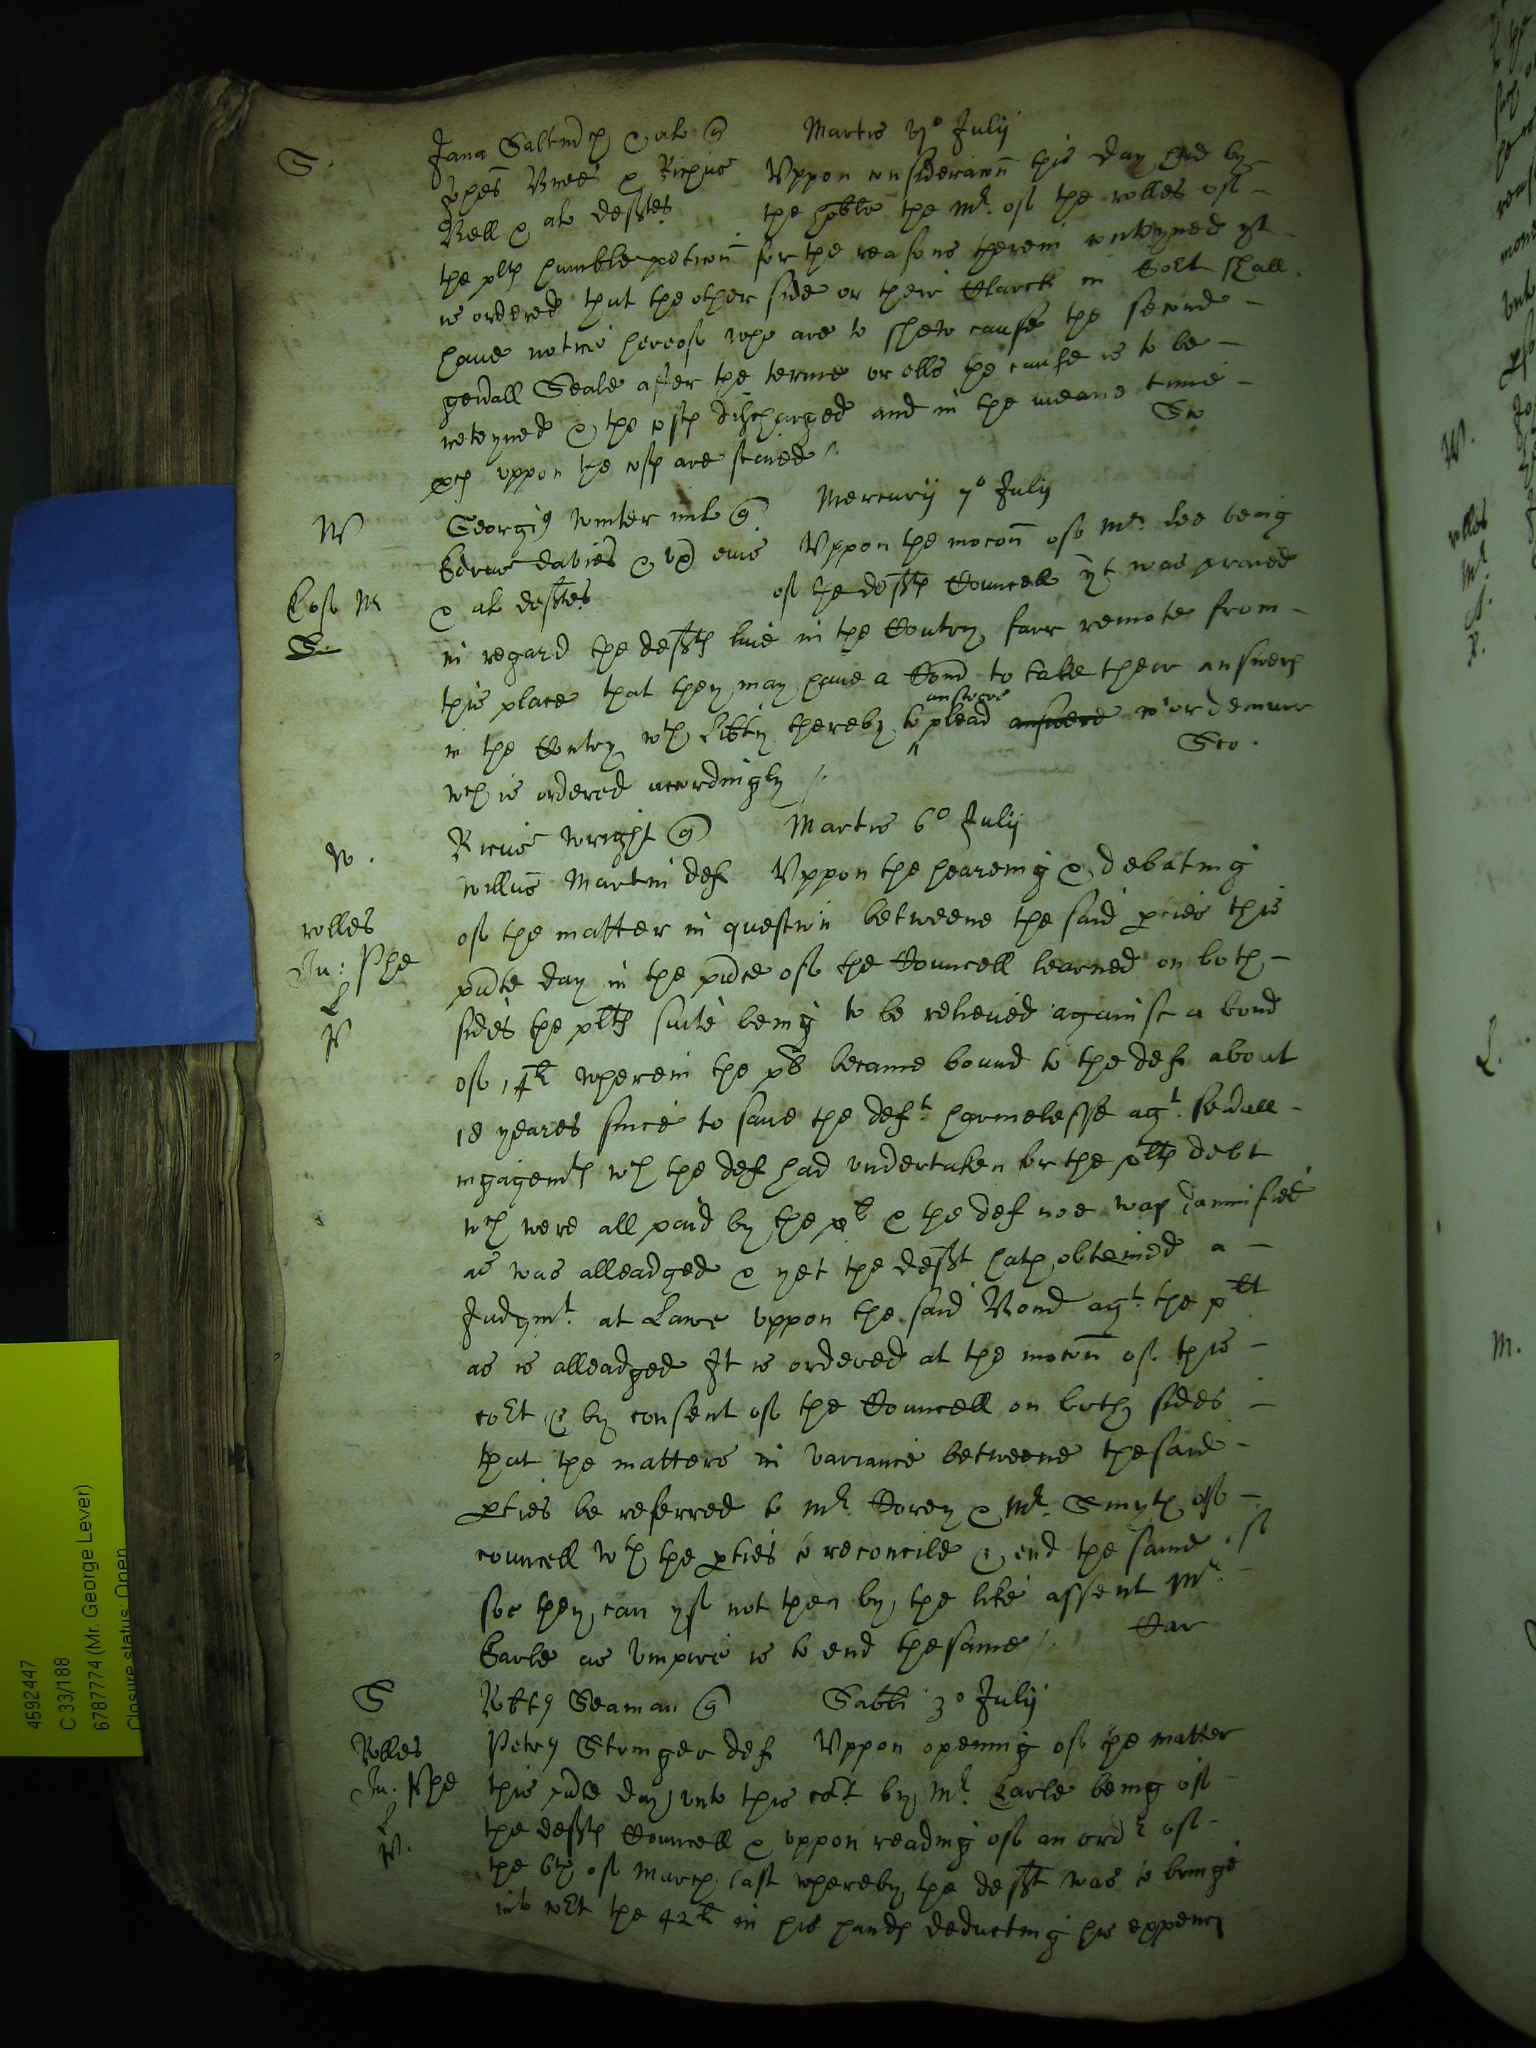 S. Jana Saltm & al q Martis vj° July
Johes Brees & Ricus Uppon consideracon this day had by
Bell & al deftes the hoble the Mr. of the rolles of
the plts humble peticon for the reasons therein conteyned yt
is ordered that the other side or their Clarck in Cort shall
have notice hereof who are to shew cause the second
gerall Seale after the terme or ells the cause is to be
reteyned & the costs discharged and in the meane time
pces uppon the costs are staied Sco
W Georgis Winter mil q Mercurij 7° July
Edrus davies & ux eius Uppon the mocon of Mr. Lee being
& al deftes of the defts Councell yt was praied
S.
in regard the defts live in the Contry farr remote from
this place that they may have a Comd to take their answers
in the Contry wth libty thereby to answere plead answere or demurr
wch is ordered accordingly Sco.
W. Ricus Wright q Martis 6° July
Willus Martin def Uppon the hearing & debating
rolles of the matter in question betweene the said pties this
Ju: Phe pnte day in the pnce of the Councell learned on both
L sides the plts suite being to be releived against a bond
P of 14li wherein the pl became bound to the def about
18 yeares since to save the deft. harmelesse agt. seuall
ingagemts wch the def had undertaken for the plts debt
wch were all paid by the pl & the def noe way damnified
as was alleadged & yet the deft hath obteined a
Judgmt. at Lawe uppon the said Bond agt. the plt
as is alleadged It is ordered at the mocon of this
cort & by consent of the Councell on both sides
that the matters in variance betweene the said
pties be referred to Mr. Dorey & Mr. Smyth of
councell wth the pties to reconcile & end the same if
soe they can yf not then by the like assent Mr.
Earle as Umpire is to end the same Car
S Robtus Seaman q Sabbi 3° July
Rolles Petrus Stringer def Uppon opening of the matter
Ju: Phe this pnte day unto this cort by Mr. Earle being of
L the defts Councell & uppon reading of an ordr of
P. the 6th of March last whereby the deft was to bringe
into cort the 42li in his hands deducting his expencs
W.
rolles
Mr
L.
M.
4592447
C 33/188
6787774 (Mr. George Lever)
Closure status: Open